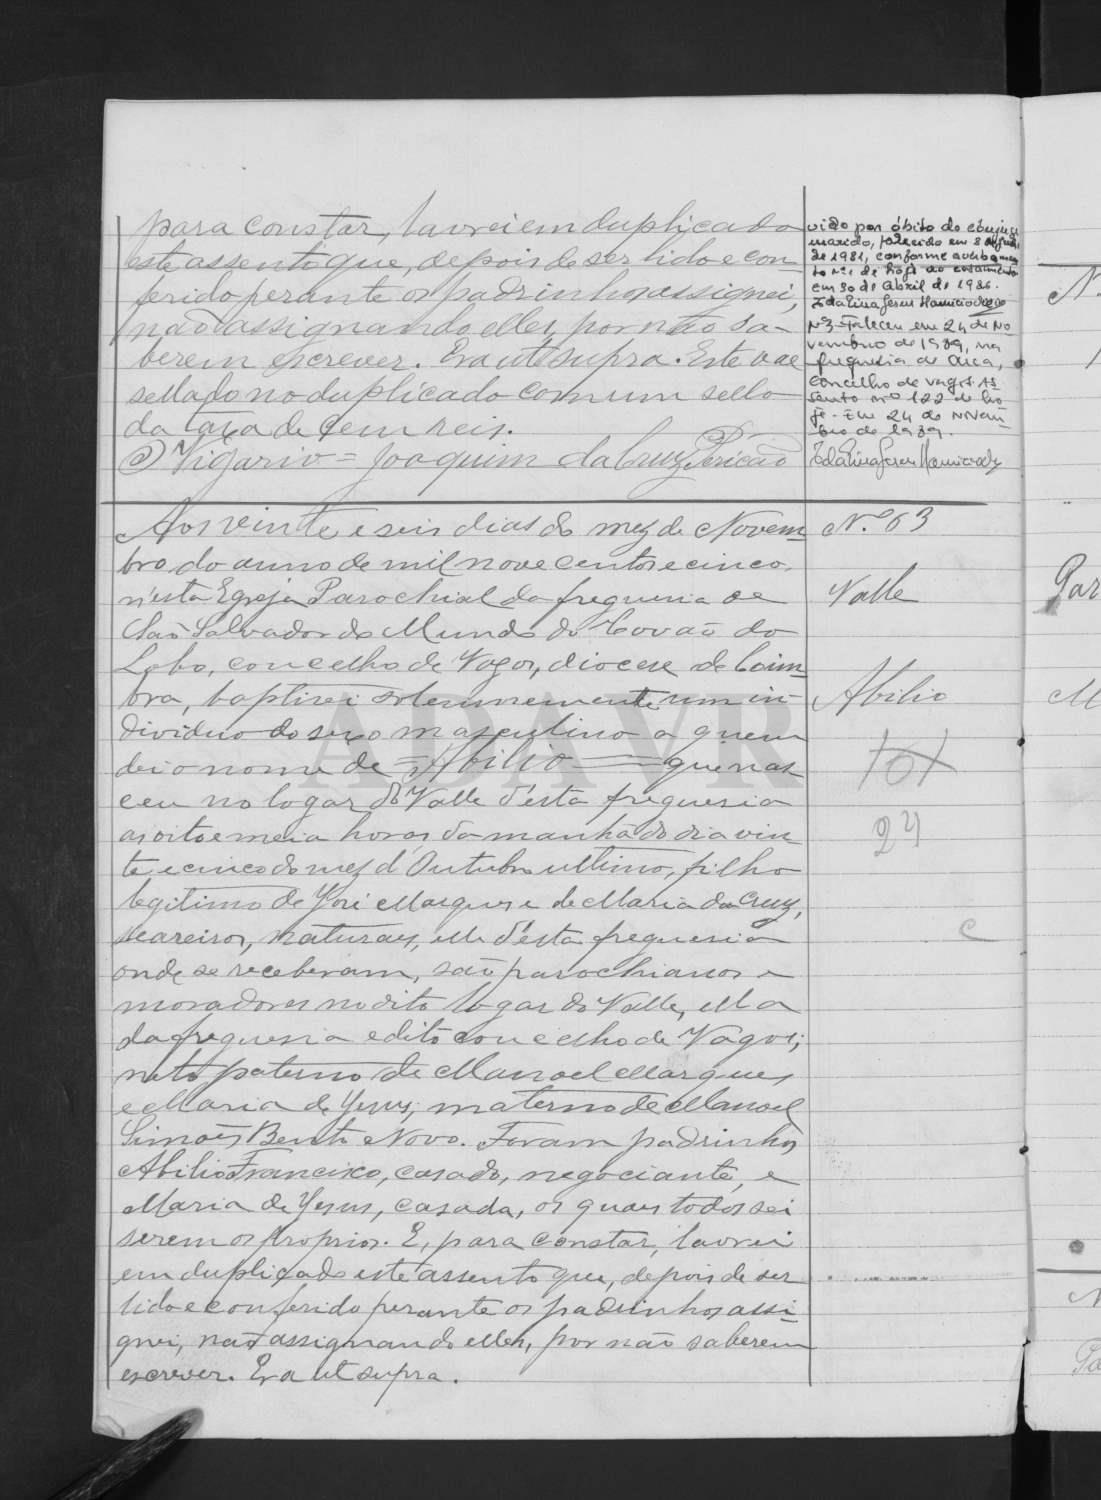 para constar, lavrei em duplicado
este assento que, depois de ser lido e con-
ferido perante os padrinhos assignei,
não assignando elles, por não sa-
berem escrever. Era ut supra. Este vae
sellado no duplicado com um sello
da taxa de cem reis.
O Vigario = Joaquim da Cruz Pericão
vido por óbito do cônjuge
marido, falecido em 8 de
de 1981, conforme averbamen
to nº1 de hoje ao casamento
em 30 de Abril de 1986.
Idalina Jesus
Nº3 - Faleceu em 24 de No
vembro de 1989, na
freguesia de
concelho de Vagos. As
sento nº 122 de ho
je - Em 24 de Novem
bro de 1989.
Idalina Jesus
Aos vinte e seis dias do mez de Novem-
bro do anno de mil nove centos e cinco,
n'esta Egreja Parochial da freguesia de
São Salvador do Mundo do Covão do
Lobo, concelho de Vagos, diocese de Coim-
bra, baptisei solemnemente um in-
dividuo do sexo masculino a quem
dei o nome de = Abilio = que nas-
ceu no logar do Valle d'esta freguesia
as oito e meia horas da manhã do dia vin-
te e cinco do mez d'Outubro ultimo, filho
legitimo de José Marques e de Maria da Cruz,
seareiros, naturaes, elle d'esta freguesia
onde se receberam, são parochianos e
moradores no dito logar do Valle, ella
da freguesia e dito concelho de Vagos;
neto paterno de Manoel Marques
e Maria de Jesus; materno de Manoel
Simões Bento e Novo. Foram padrinhos
Abilio Francisco, casado, negociante, e
Maria de Jesus, casada, os quaes todos sei
serem os proprios. E, para constar, lavrei
em duplicado este assento que, depois de ser
lido e conferido perante os padrinhos assi-
gnei, não assignando elles, por não saberem
escrever. Era ut supra.
N.º 63
Valle
Abilio
24
C
N.
Par
M
N
Pa
ADAVR